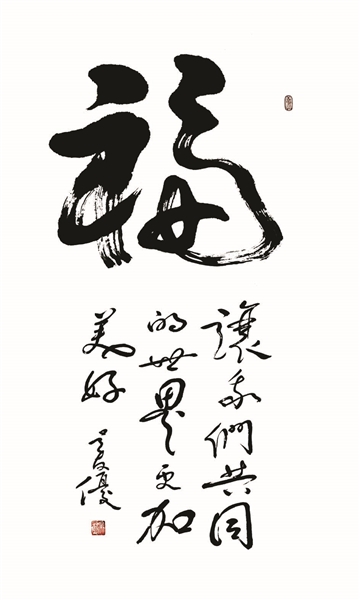 福
讓我們共同
的世界更加
美好
優